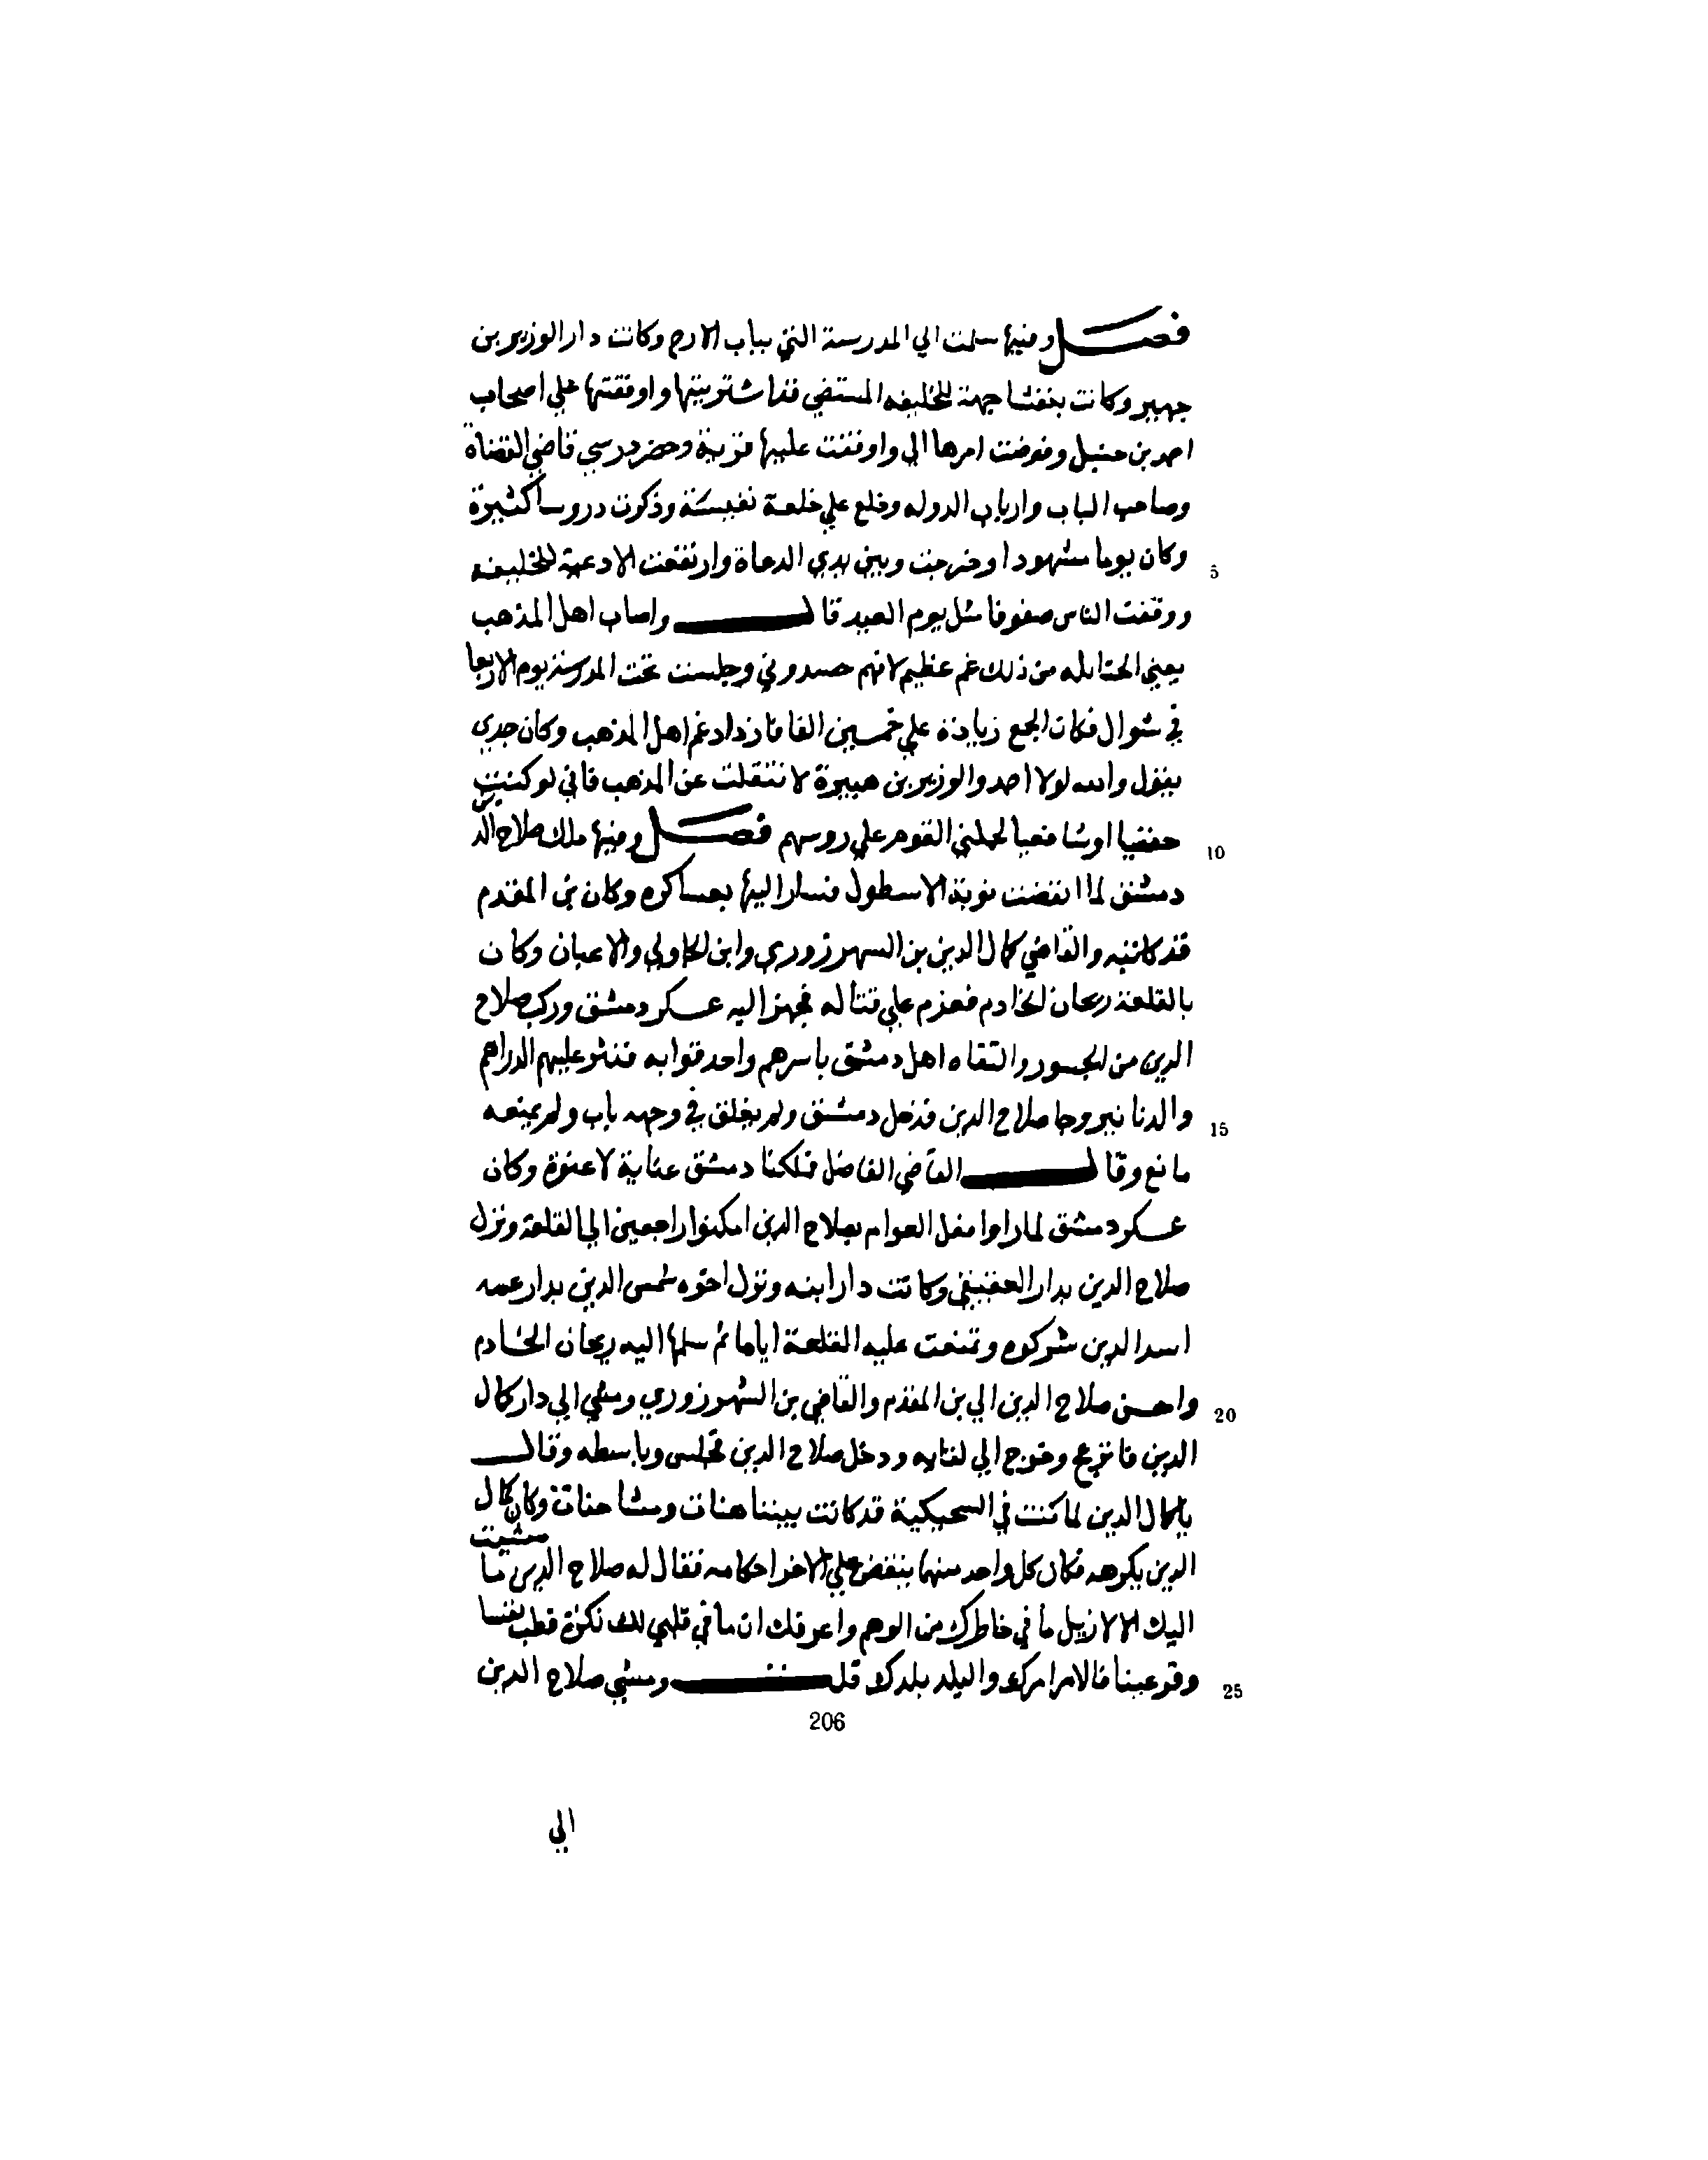 فصل ومنها سلمت الي المدرسة التي بباب الازج وكانت دار الوزير بن
جهير وكانت بنفشا جهة الخليفه المستضي قد اشتريتها واوقفتها علي اصحاب
احمد بن حنبل وفوضت امرها الي واوقفت عليها قرية وحضر درسي قاضي القضاة
وصاحب الباب وارباب الدوله وخلع علي خلعة نفيسة وذكرت دروسا كثيرة
وكان يوما مشهودا وخرجت وبين يدي الدعاة وارتفعت الادعية للخليفه 5
ووقفت الناس صفوفا مثل يوم العيد قال واصاب اهل المذهب
يعني الحنابله من ذلك غم عظيم لانهم حسدوني وجلست تحت المدرسة يوم الاربعا
في شوال فكان الجمع زيادة علي خمسين الفا فازداد غم اهل المذهب وكان جدي
يقول والله لولا احمد والوزير بن هبيرة لانتقلت عن المذهب فاني لو كنت
حنفيا او شافعيا لحملني القوم علي روسهم فصل ومنها ملك صلاح الدين 10
دمشق لما انقضت نوبة الاسطول فسار اليها بعساكره وكان بن المقدم
قد كاتبه والقاضي كمال الدين بن السهرزوري وابن الجاولي والاعيان وكان
بالقلعة ريحان الخادم فعزم علي قتاله فجهز اليه عسكر دمشق وركب صلاح
الدين من الجسور والتقاه اهل دمشق باسرهم واحدقوا به فنثر عليهم الدراهم
والدنانير وجا صلاح الدين فدخل دمشق ولم يغلق في وجهه باب ولم يمنعه 15
مانع وقال القاضي الفاضل فملكنا دمشق عناية لا عنوة وكان
عسكر دمشق لما راوا فعل العوام بصلاح الدين امكنوا راجعين الي القلعة ونزل
صلاح الدين بدار العقيقي وكانت دار ابنه ونزل اخوه شمس الدين بدار عمه
اسد الدين شركوه وتمنعت عليه القلعة اياما ثم سلمها اليه ريحان الخادم
واحسن صلاح الدين الي بن المقدم والقاضي بن الشهرزوري ومشي الي دار كمال 20
الدين فانزعج وخرج الي لقايه ودخل صلاح الدين فجلس وباسطه وقال
يا كمال الدين لما كنت في السحكية قد كانت بيننا هنات ومشاحنات وكان كمال
الدين يكرهه فكان كل واحد منهما ينقض علي الاخر احكامه فقال له صلاح الدين ما مشيت
اليك الا لازيل ما في خاطرك من الوهم واعرفك ان ما في قلبي لك نكرة فطب نفسا
وقر عينا فالامر امرك والبلد بلدك قلت ومشي صلاح الدين 25
206
الي